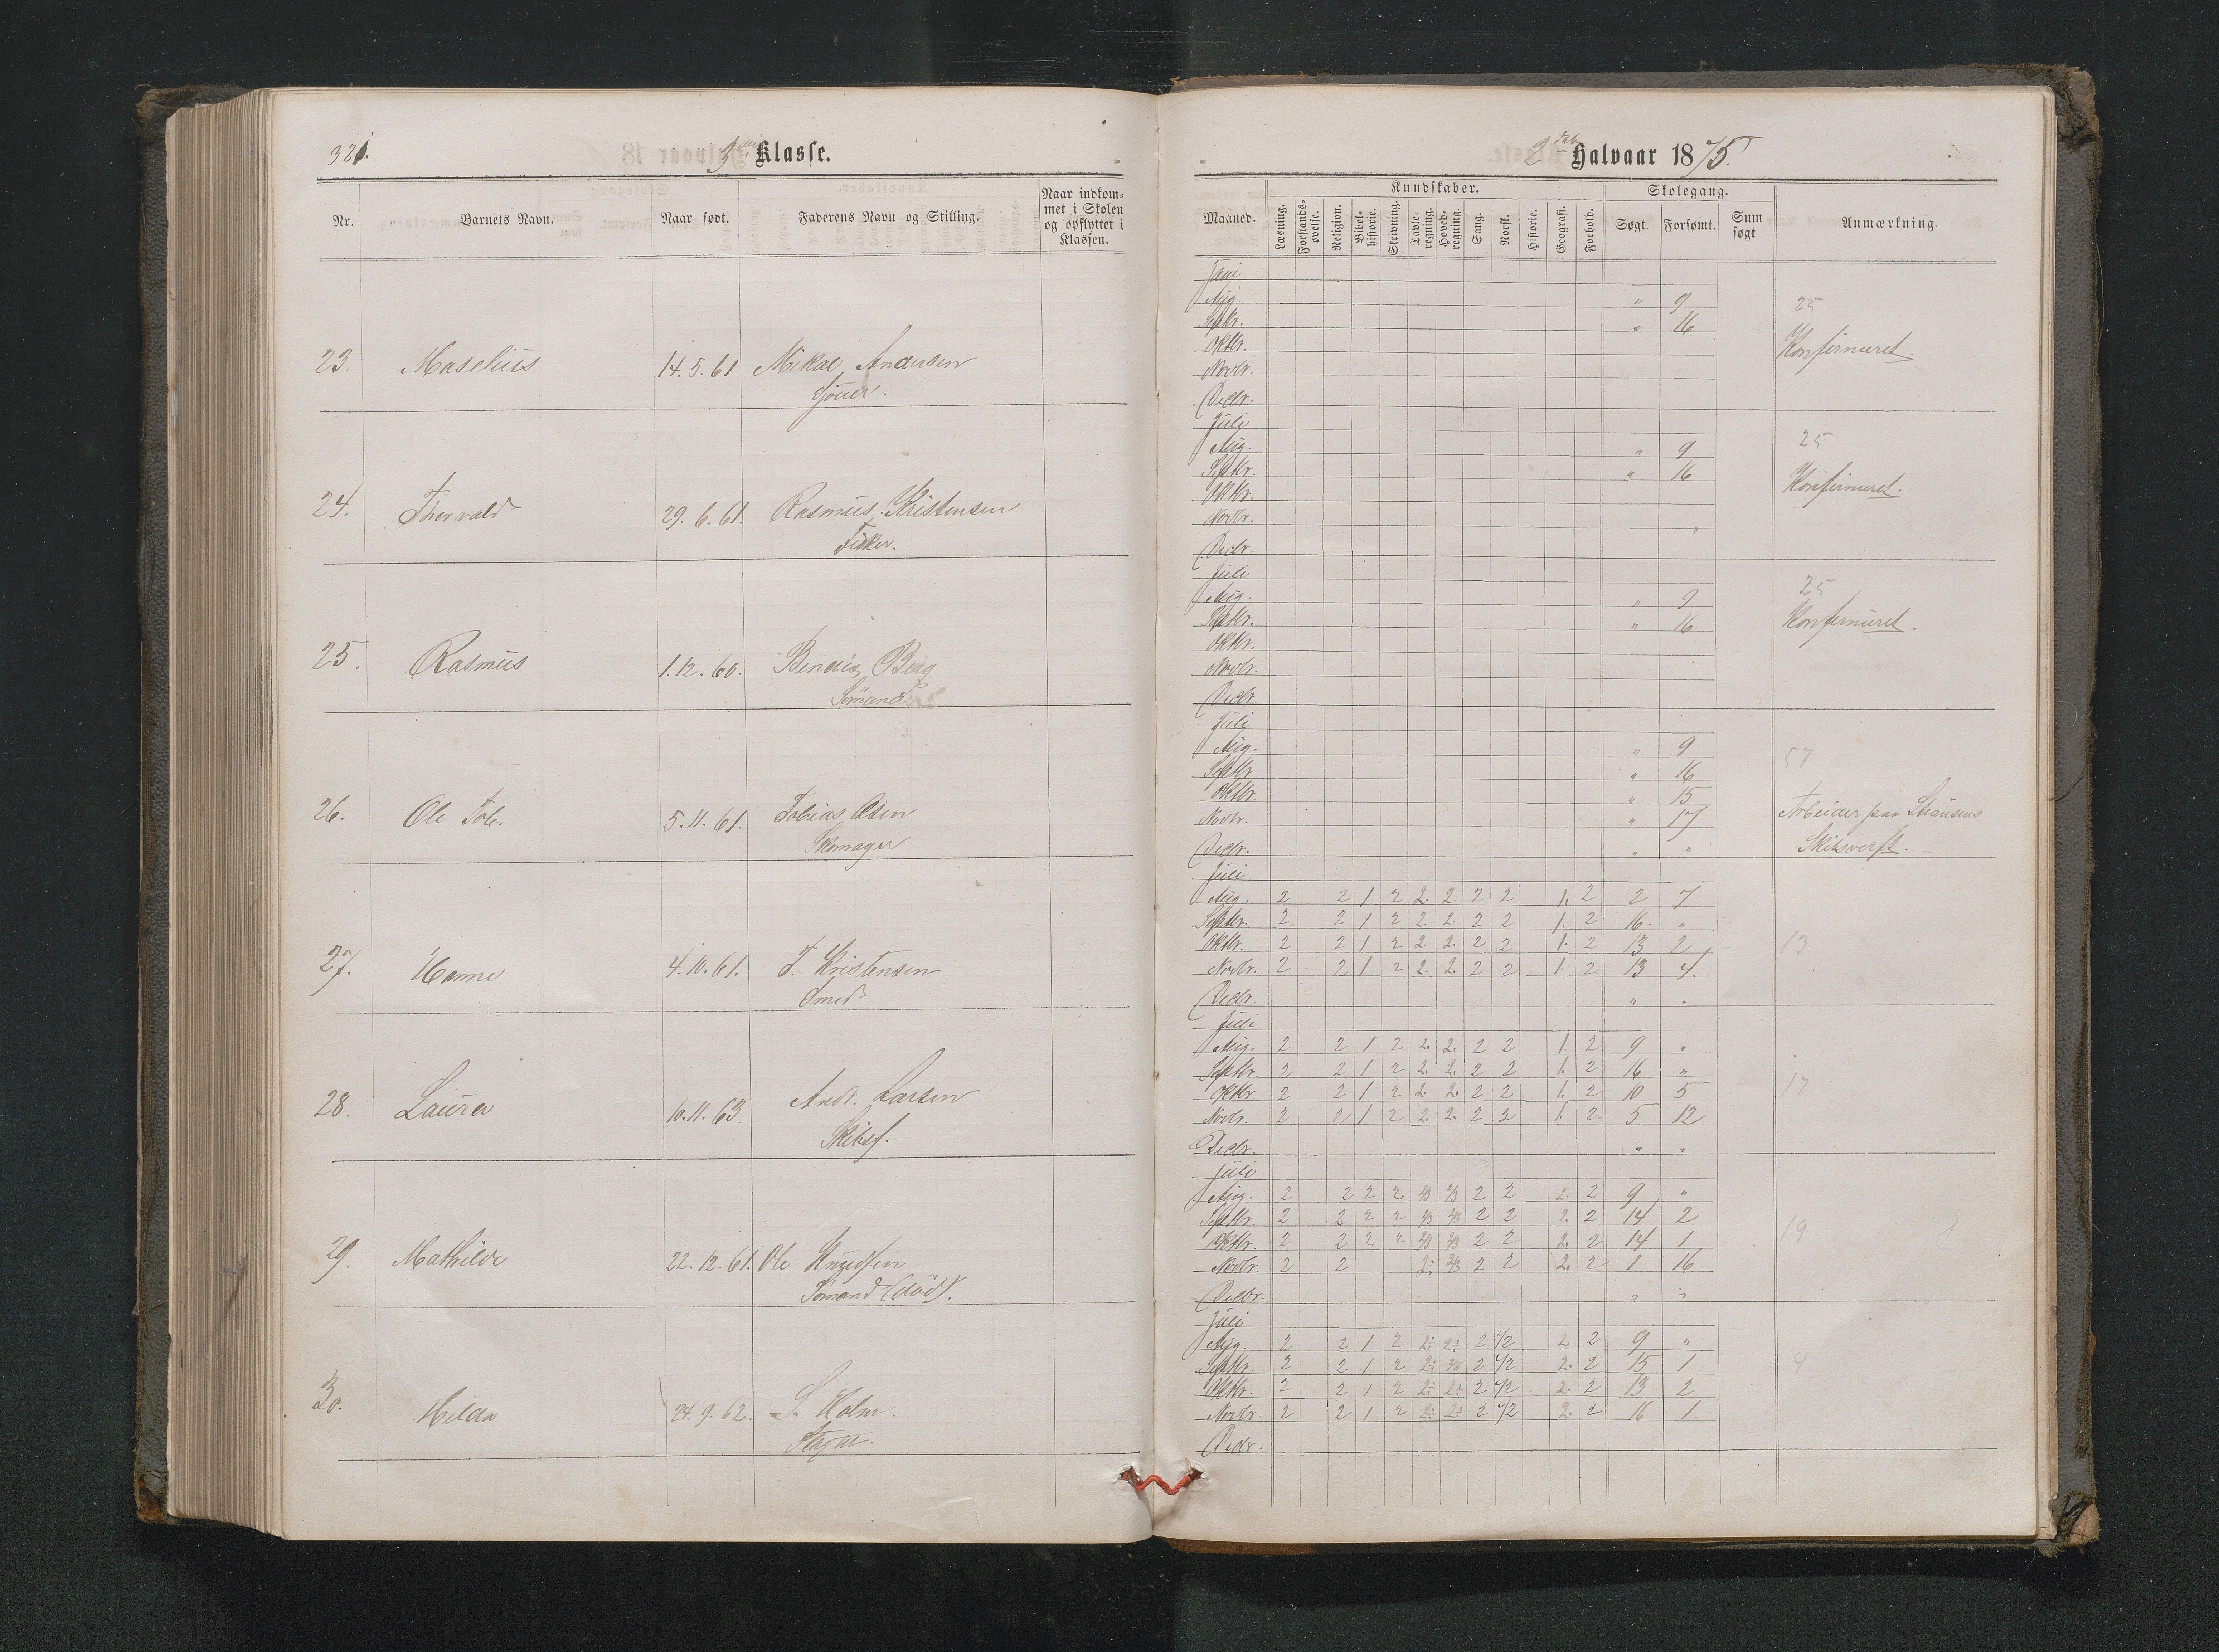 321.
Klasse.
Nr. Barnets Navn. Naar født. Faderens Navn og Stilling. Naar indkom-
met i Skolen
og opflyttet i
Klassen.
23. Maselius 14.5.61 Mikal Andersen
24. Thorvald 29.6.61. Rasmus Kristensen
Fisker.
25. Rasmus 1.12.60. Berg
Sömand
26. Ole Tob. 5.11.61. Tobias Olsen
Skomager
27. Hanne 4.10.61. F. Kristensen
Smed
28. Laura 10.11.63 Andr. Larsen
Skibsf.
29. Mathilde 22.12.61. Ole Knudsen
Sömand (död).
30. Hilda 24.9.62. S. Holm.
2det Halvaar 1875.
Maaned. Kundskaber. Skolegang. Anmærkning.
Læsning. Forstands-
øvelse. Religion. Bibel-
historie. Skrivning. Tavle-
regning. Hoved-
regning. Sang. Norsk. Historie. Geografi. Forhold. Søgt. Forsømt. Sum
søgt
Juli
Aug. " 9 25
Septbr. " 16
Oktbr. Konfirmeret.
Novbr.
Decbr.
Juli
Aug. " 9 25
Septbr. " 16
Oktbr. Konfirmeret.
Novbr.
Decbr.
Juli
Aug. " 9 25
Septbr. " 16 Konfirmeret.
Oktbr.
Novbr.
Decbr.
Juli
Aug. " 9 57
Septbr. " 16
Oktbr. " 15
Novbr. " 17 Arbeider paa
Decbr. " " Skibsverft.
Juli
Aug. 2 2 1 2 2. 2. 2 2 1. 2 2 7
Septbr. 2 2 1 2 2. 2. 2 2 1. 2 16. "
Oktbr. 2 2 1 2 2. 2. 2 2 1. 2 13 2 13
Novbr. 2 2 1 2 2. 2. 2 2 1. 2 13 4.
Decbr. " "
Juli
Aug. 2 2 1 2 2. 2. 2 2 1. 2 9 "
Septbr. 2 2 1 2 2. 2. 2 2 1. 2 16 "
Oktbr. 2 2 1 2 2. 2. 2 2 1. 2 10 5 17
Novbr. 2 2 1 2 2. 2. 2 2 1. 2 5 12
Decbr. " "
Juli
Aug. 2 2 2 2 2/3 2/3 2 2 2. 2 9 "
Septbr. 2 2 2 2 2/3 2/3 2 2 2. 2 14 2
Oktbr. 2 2 2 2 2/3 2/3 2 2 2. 2 14 1 19
Novbr. 2 2 2/3 2 2 2. 2 1 16
Decbr. " "
Juli
Aug. 2 2 1 2 2 1/2 2 2 9 "
Septbr. 2 2 1 2 2 1/2 2. 2 15 1 4
Oktbr. 2 2 1 2 2 1/2 2. 2 13 2
Novbr. 2 2 1 2 2 1/2 2. 2 16 1.
Decbr.